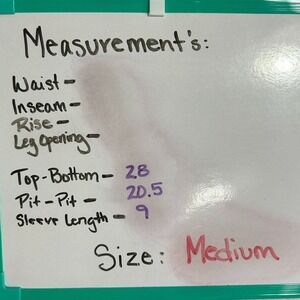 Measurement's:
Waist -
Inseam -
Rise -
Leg Opening -
Top-Bottom - 28
Pit-Pit - 20.5
Sleeve Length - 9
Size: Medium